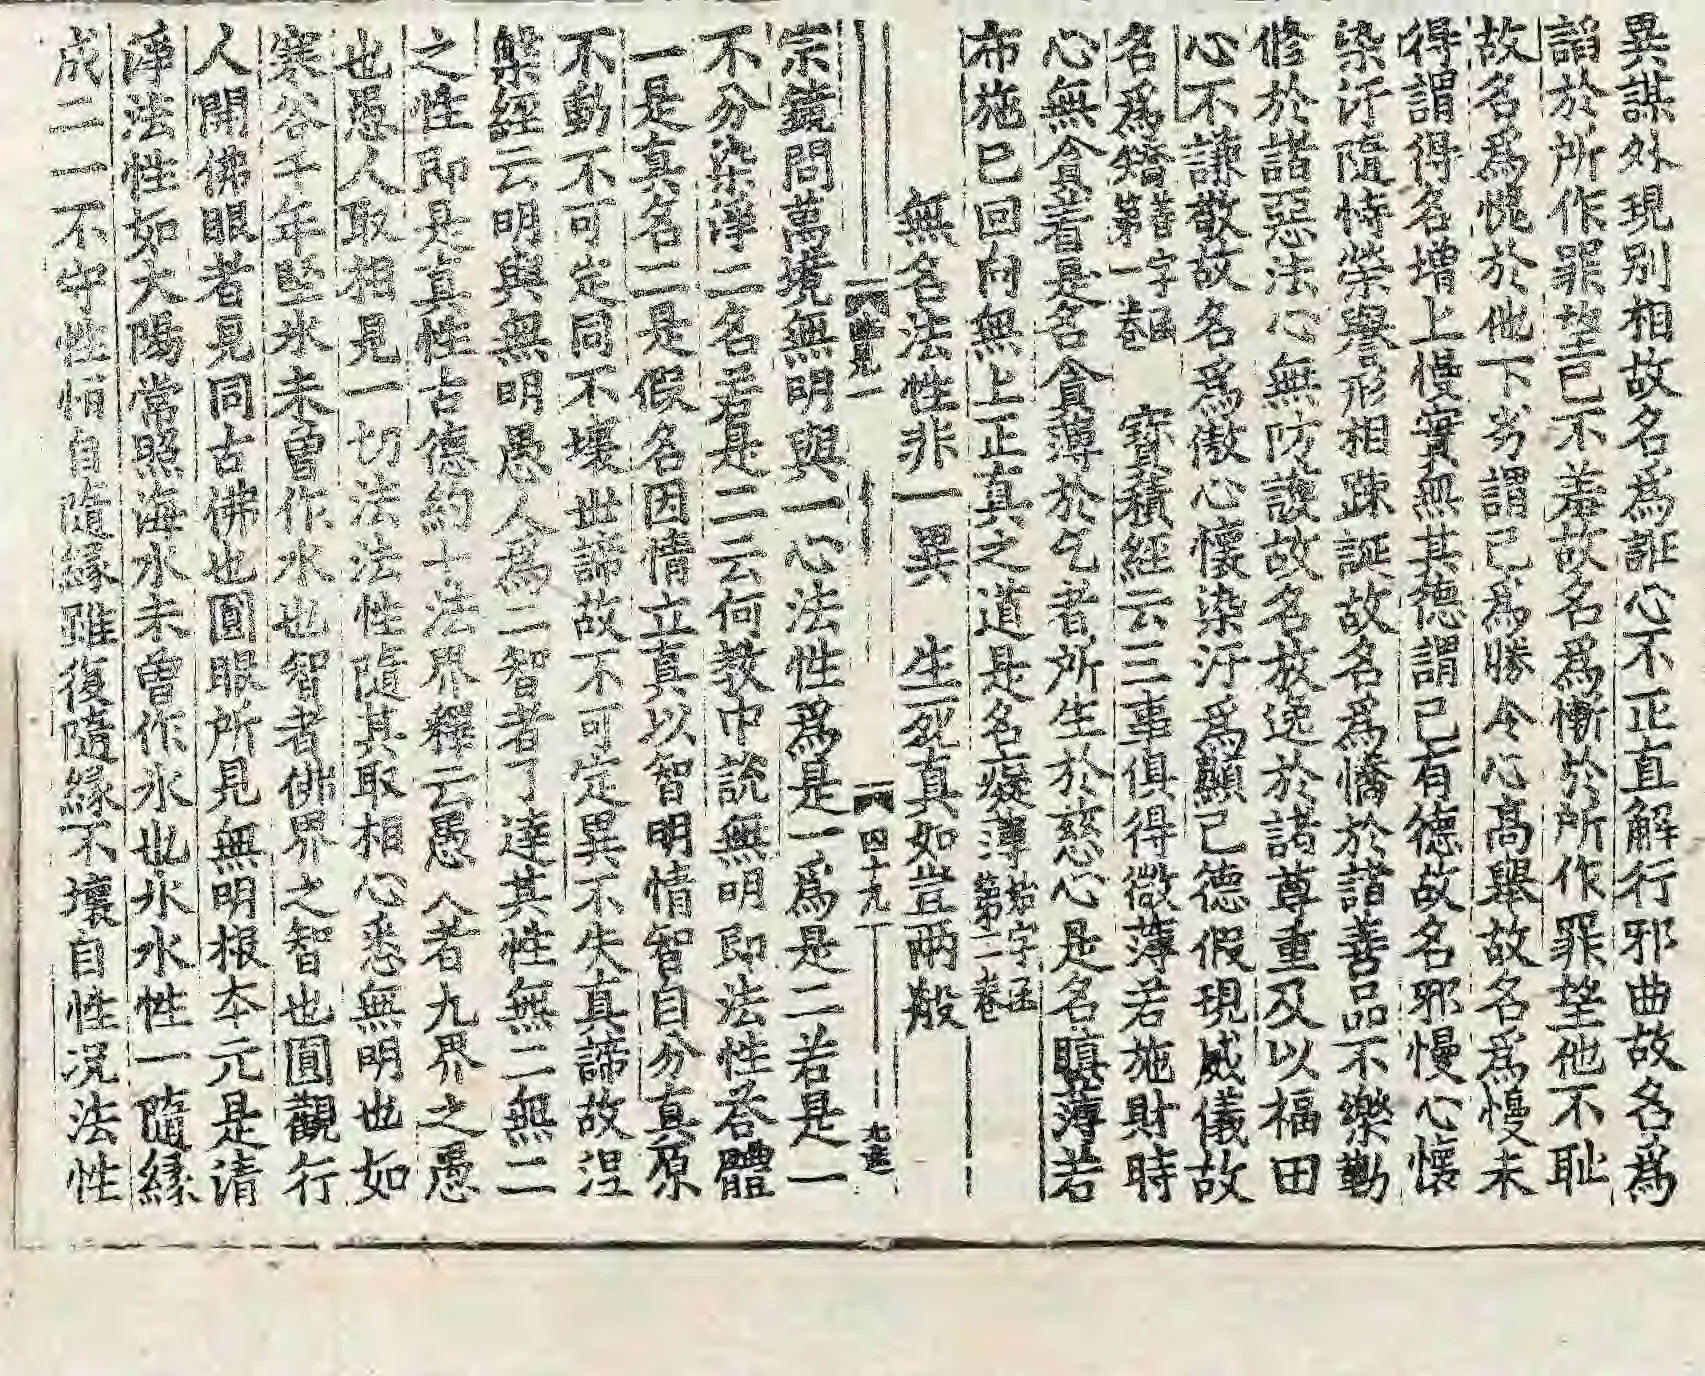 異謀外現別相故名爲誑心不正直解行邪曲故名爲
諂於所作罪望己不羞故名爲慚於所作罪望他不恥
故名爲愧於他下劣謂己爲勝令心高舉故名爲慢未
得謂得名增上慢實無其德謂己有德故名邪慢心懷
染汙隨恃榮譽形相踈誕故名爲憍於諸善品不樂勤
修於諸惡法心無防護故名放逸於諸尊重及以福田
心不謙敬故名爲傲心懷染汙爲顯己德假現威儀故
名爲矯 寶積經云三事俱得微薄若施財時
心無貪着是名貪薄於乞者所生於慈心是名瞋薄若
布施已回向無上正真之道是名癡薄
無名法性非一異 生死真如豈兩般
四十九
宗鏡問萬境無明與一心法性爲是一爲是二若是一
不分染淨二名若是二云何教中說無明即法性荅體
一是真名二是假名因情立真以智明情智自分真原
不動不可定同不壞世諦故不可定異不失真諦故涅
槃經云明與無明愚人爲二智者了達其性無二無二
之性即是真性古德約十法界釋云愚人者九界之愚
也愚人取相見一切法法性隨其取相心悉無明也如
寒谷千年堅氷未曾作水也智者佛界之智也圓觀行
人開佛眼者見同古佛也圓眼所見無明根本元是清
淨法性如大陽常照海水未曾作氷也氷水性一隨緣
成二二不守性怕自隨緣雖復隨緣不壞自性况法性